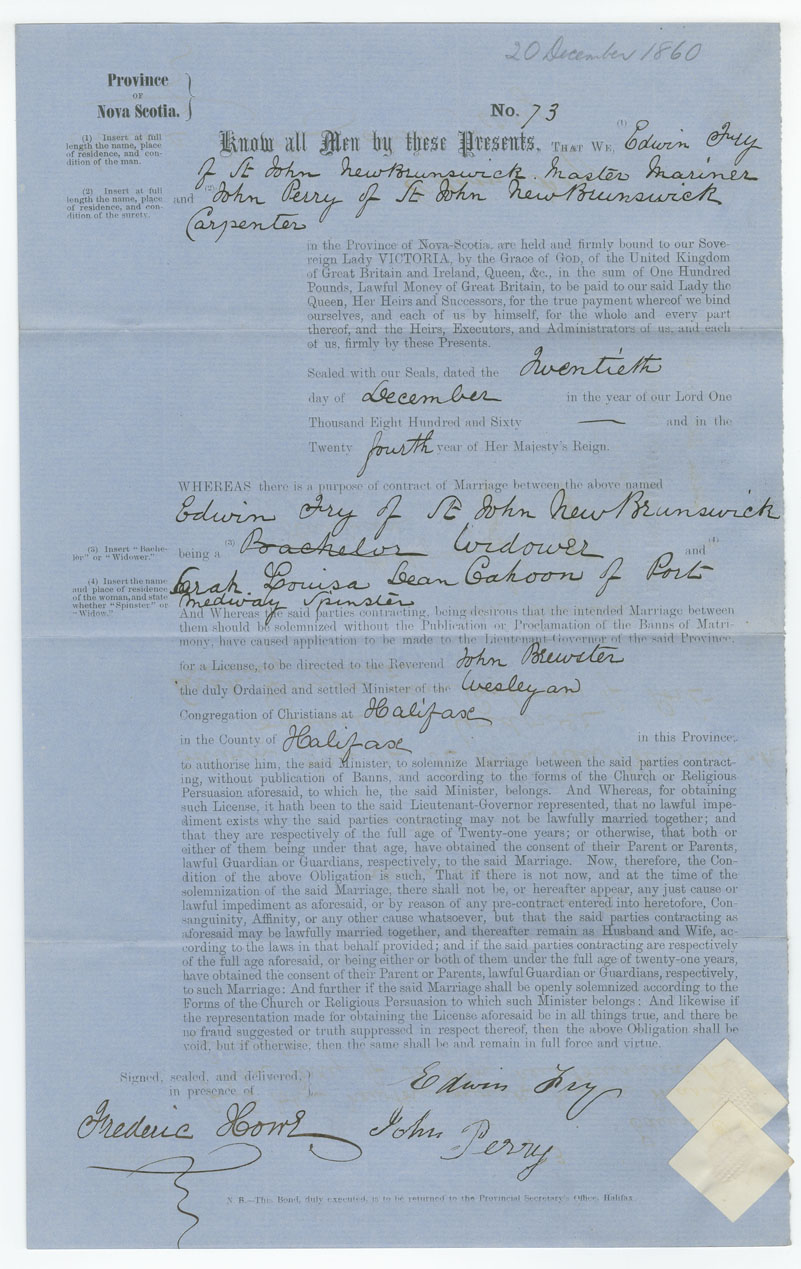 20 December 1860
Province
OF
Nova Scotia.
No. 73
(1) Insert at full
length the name, place
of residence, and con-
dition of the man.
(2) Insert at full
length the name, place
of residence, and con-
dition of the surety.
Know all Men by these Presents, THAT WE, (1) Edwin Fry
of St John New Brunswick. Master Mariner
and (2) John Perry of St John New Brunswick
Carpenter
in the Province of Nova-Scotia, are held and firmly bound to our Sove-
reign Lady VICTORIA, by the Grace of GOD, of the United Kingdom
of Great Britain and Ireland, Queen, &c., in the sum of One Hundred
Pounds, Lawful Money of Great Britain, to be paid to our said Lady the
Queen, Her Heirs and Successors, for the true payment whereof we bind
ourselves, and each of us by himself, for the whole and every part
thereof, and the Heirs, Executors, and Administrators of us, and each
of us, firmly by these Presents.
Sealed with our Seals, dated the Twentieth
day of December in the year of our Lord One
Thousand Eight Hundred and Sixty — and in the
Twenty fourth year of Her Majesty's Reign.
WHEREAS there is a purpose of contract of Marriage between the above named
Edwin Fry of St John New Brunswick
(3) Insert "Bache-
lor" or "Widower."
being a (3) Bachelor Widower and (4)
(4) Insert the name
and place of residence
of the woman, and state
whether "Spinster" or
"Widow."
Sarah Louisa Dean Cahoon of Port
Medway Spinster
And Whereas the said parties contracting, being desirous that the intended Marriage between
them should be solemnized without the Publication or Proclamation of the Banns of Matri-
mony, have caused application to be made to the Lieutenant-Governor of the said Province,
for a License, to be directed to the Reverend John Brewster
the duly Ordained and settled Minister of the Wesleyan
Congregation of Christians at Halifax
in the County of Halifax in this Province,
to authorise him, the said Minister, to solemnize Marriage between the said parties contract-
ing, without publication of Banns, and according to the forms of the Church or Religious
Persuasion aforesaid, to which he, the said Minister, belongs. And Whereas, for obtaining
such License, it hath been to the said Lieutenant-Governor represented, that no lawful impe-
diment exists why the said parties contracting may not be lawfully married together; and
that they are respectively of the full age of Twenty-one years; or otherwise, that both or
either of them being under that age, have obtained the consent of their Parent or Parents,
lawful Guardian or Guardians, respectively, to the said Marriage. Now, therefore, the Con-
dition of the above Obligation is such, That if there is not now, and at the time of the
solemnization of the said Marriage, there shall not be, or hereafter appear, any just cause or
lawful impediment as aforesaid, or by reason of any pre-contract entered into heretofore, Con-
sanguinity, Affinity, or any other cause whatsoever, but that the said parties contracting as
aforesaid may be lawfully married together, and thereafter remain as Husband and Wife, ac-
cording to the laws in that behalf provided; and if the said parties contracting are respectively
of the full age aforesaid, or being either or both of them under the full age of twenty-one years,
have obtained the consent of their Parent or Parents, lawful Guardian or Guardians, respectively,
to such Marriage: And further if the said Marriage shall be openly solemnized according to the
Forms of the Church or Religious Persuasion to which such Minister belongs: And likewise if
the representation made for obtaining the License aforesaid be in all things true, and there be
no fraud suggested or truth suppressed in respect thereof, then the above Obligation shall be
void, but if otherwise, then the same shall be and remain in full force and virtue.
Signed, sealed, and delivered,
in presence of
Edwin Fry
Frederic Howe John Perry
N B.—This Bond, duly executed, is to be returned to the Provincial Secretary's Office, Halifax.